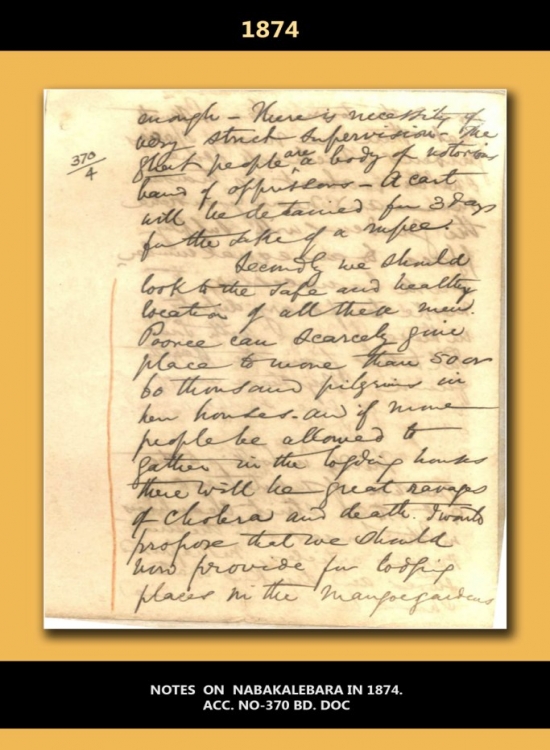 1874
370/4
enough - There is necessity of
very strict supervision - The
Ghat people are a body of notorious
band of oppressors - A cart
will be detained for 3 days
for the sake of a rupee.
Secondly we should
look to the safe and healthy
location of all these men.
Pooree can scarcely give
place to more than 50 or
60 thousand pilgrims in
her houses - and if more
people be allowed to
gather in the lodging houses
there will be great ravages
of cholera and death. I would
propose that we should
now provide for lodging
places in the mangoe gardens
NOTES ON NABAKALEBARA IN 1874.
ACC. NO-370 BD. DOC